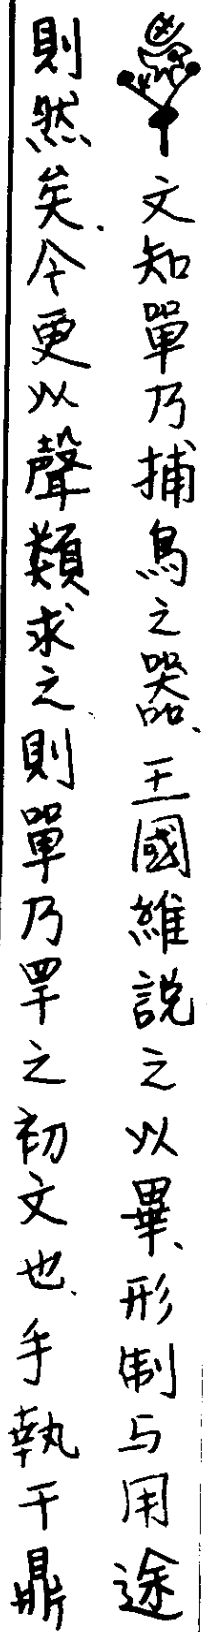 文知單乃捕鳥之器、王國維説之以畢、形制与用途
則然矣.今更以聲類求之、則單乃罕之初文也、手執干鼎